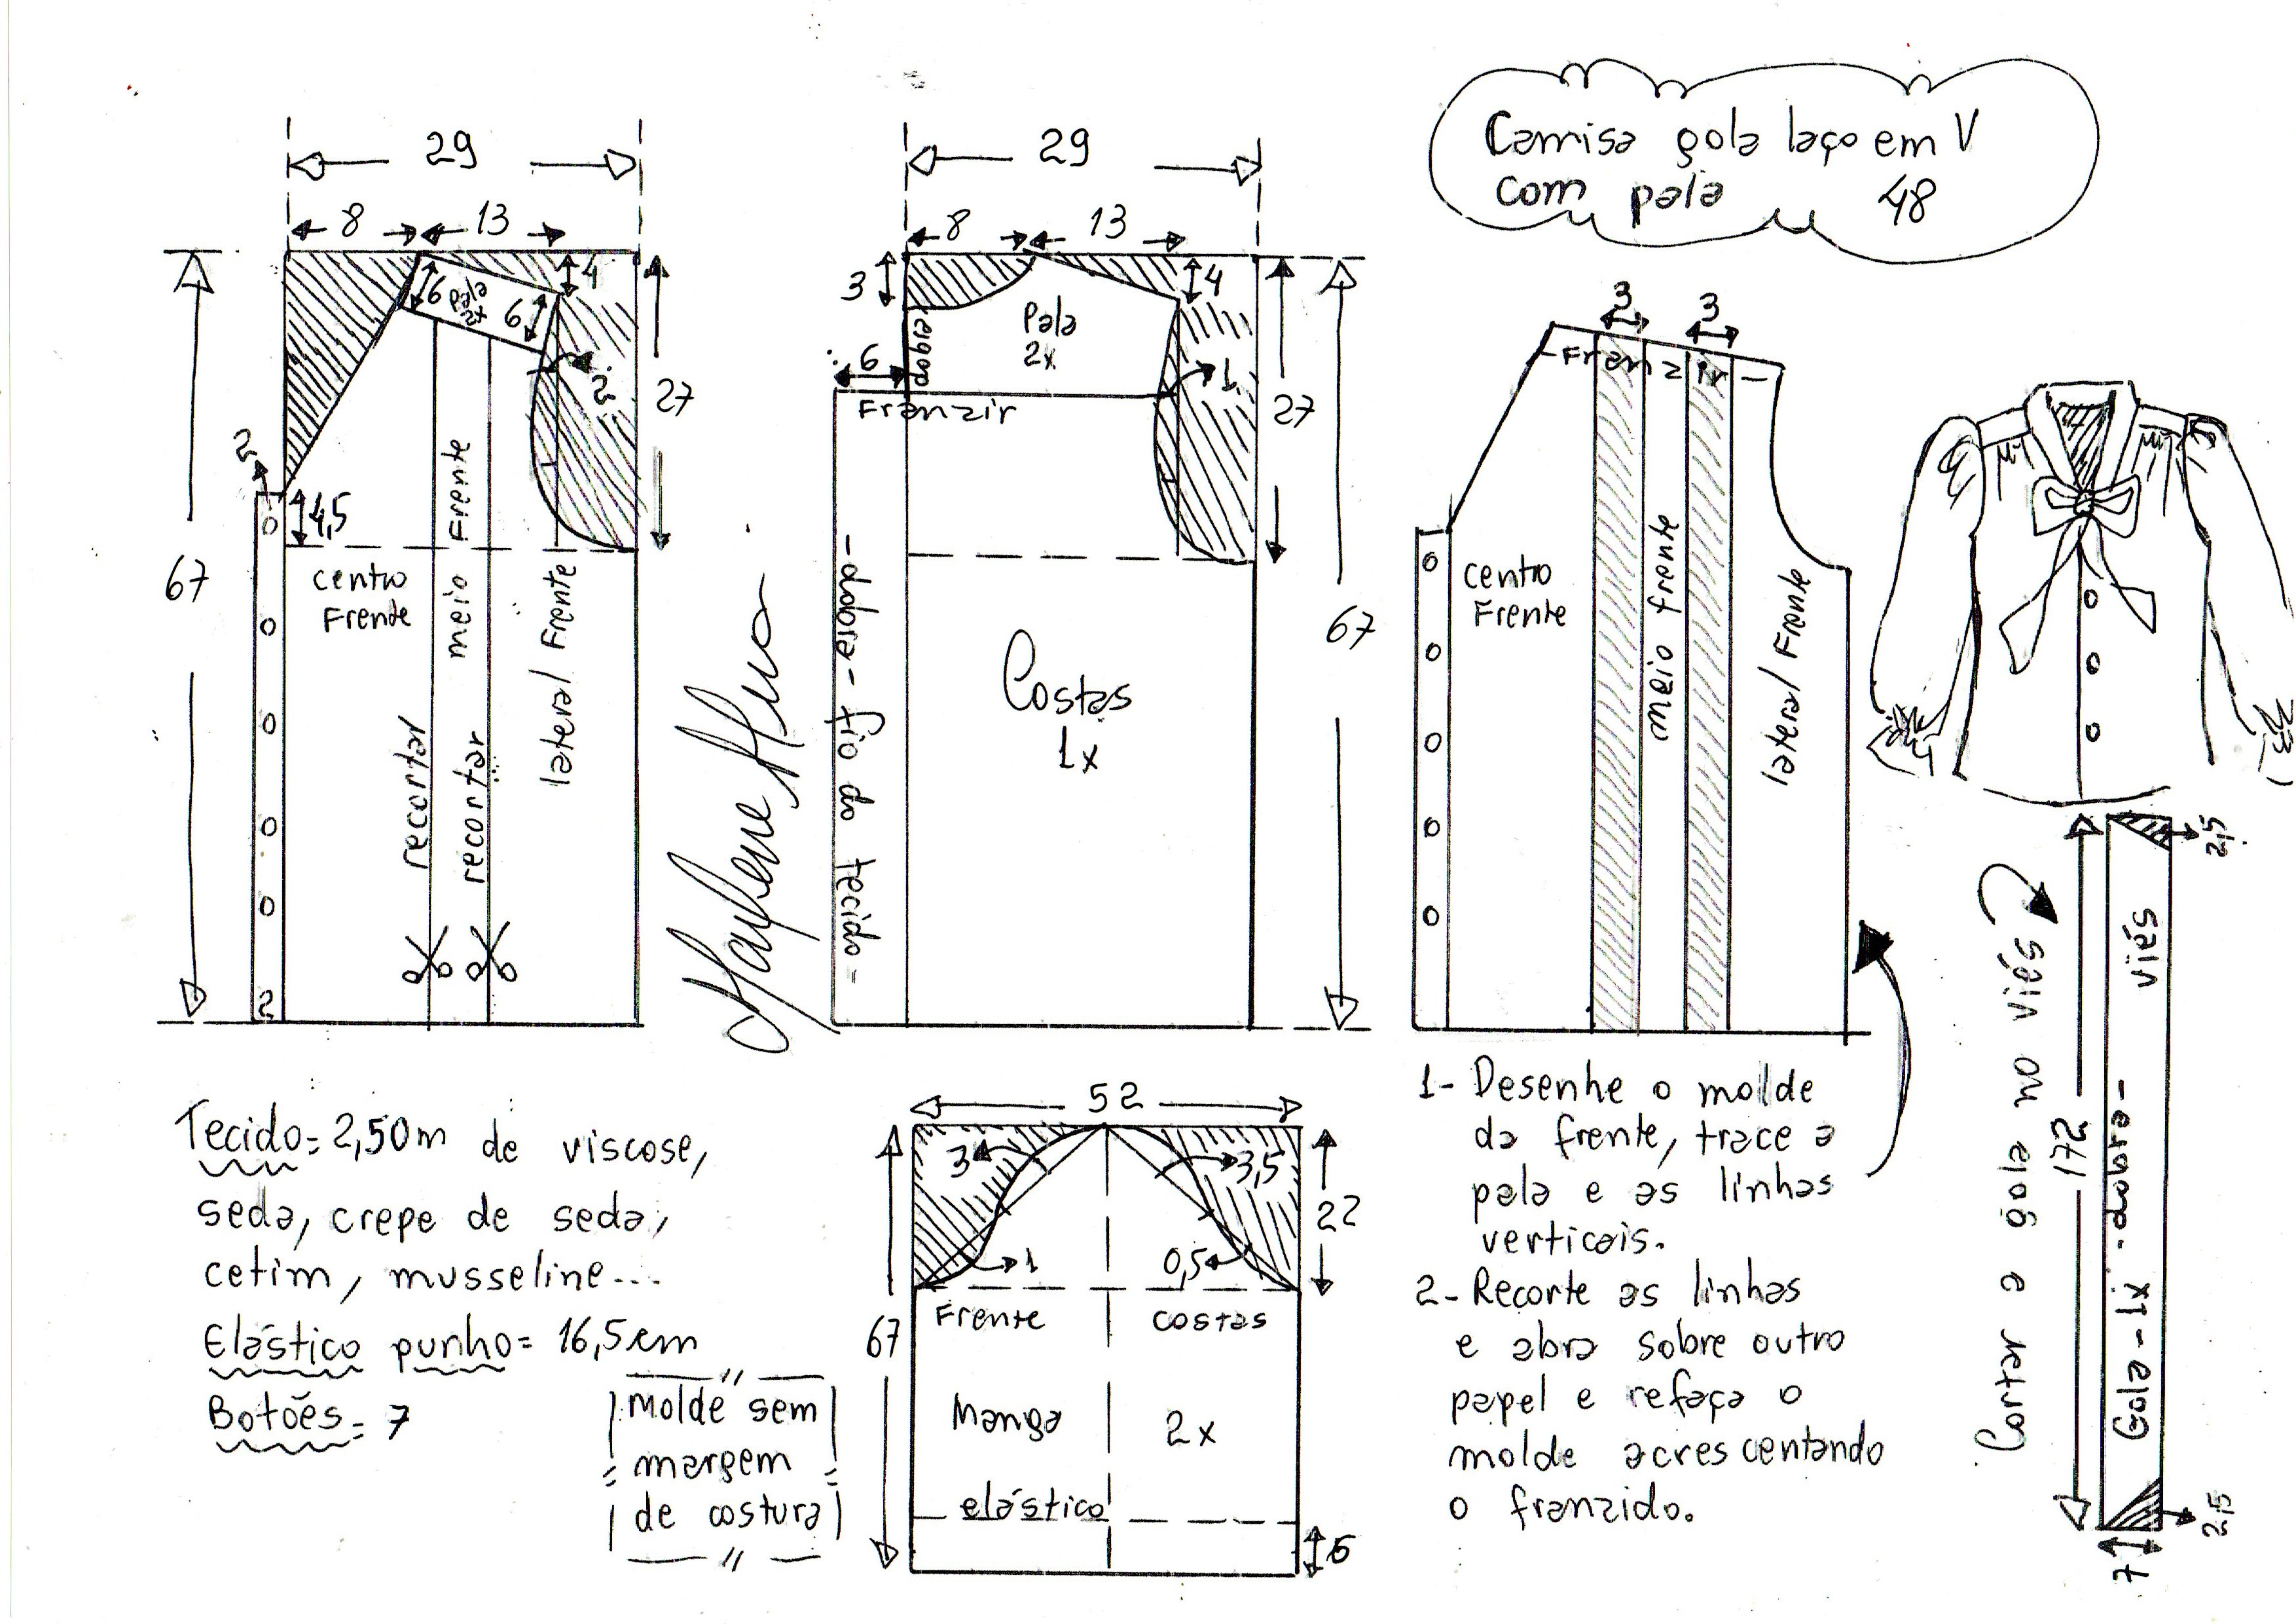 Camisa gola laço em V
com pala 48
29
8
13
4
6
Pala
2x
6
2
27
2
4,5
67
centro
Frente
meio frente
lateral Frente
recortar
recortar
2
Marlene Mukai
29
8
13
3
4
dobra
Pala
2x
6
1
Franzir
27
67
-dobra- fio do tecido-
Costas
1x
3
3
-Franzir-
centro
Frente
meio frente
lateral Frente
2,5
viés
172
Gola - 1x -dobra-
Cortar a gola no viés
2,5
7
Tecido= 2,50m de viscose,
seda, crepe de seda,
cetim, musseline...
Elástico punho= 16,5cm
Botões= 7
molde sem
margem
de costura
52
3
3,5
22
1
0,5
Frente
costas
67
Manga
2x
elástico
1- Desenhe o molde
da frente, trace a
pala e as linhas
verticais.
2- Recorte as linhas
e abra sobre outro
papel e refaça o
molde acrescentando
o franzido.